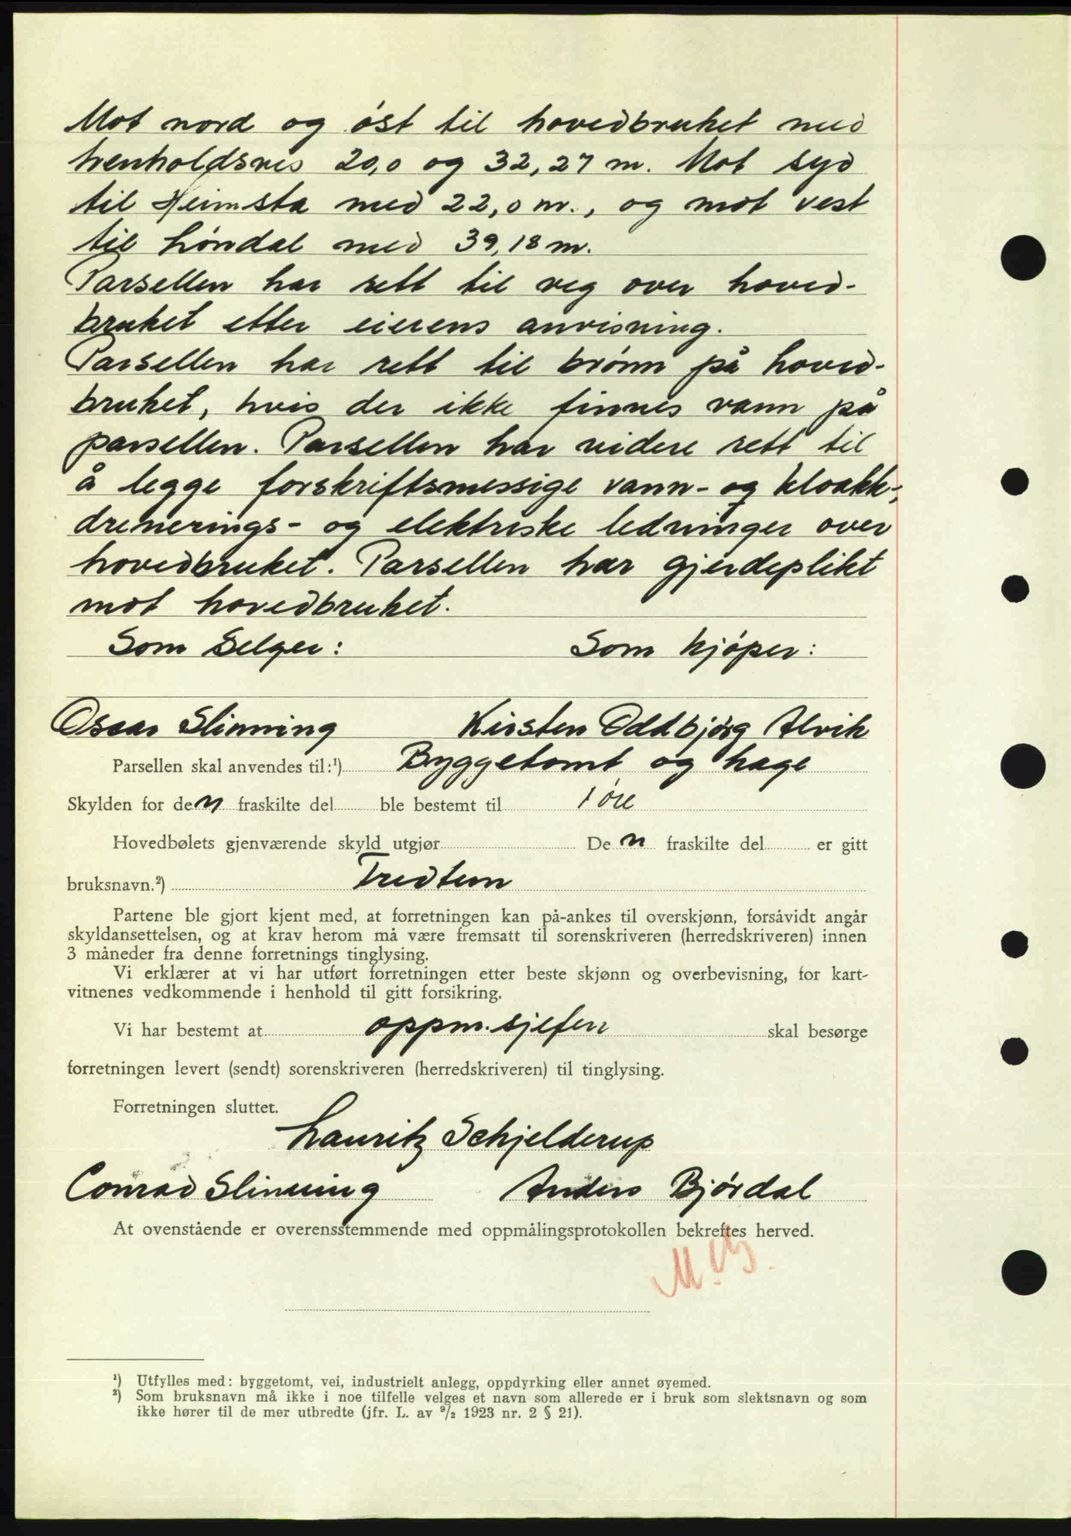 Mot nord og øst til hovedbruket med
henholdsvis 20,0 og 32,27 m. Mot syd
til Heimsta med 22,0 m., og mot vest
til Løndal med 39,18 m.
Parsellen har rett til veg over hoved-
bruket etter eierens anvisning.
Parsellen har rett til brønn på hoved-
bruket, hvis der ikke finnes vann på
parsellen. Parsellen har videre rett til
å legge forskriftsmessige vann- og kloakk-,
drenerings- og elektriske ledninger over
hovedbruket. Parsellen har gjerdeplikt
mot hovedbruket.
Som Selger: Som kjøper:
Oscar Slinning Kirsten Oddbjørg Alvik
Parsellen skal anvendes til:¹) Byggetomt og hage
Skylden for den fraskilte del ble bestemt til 1 øre
Hovedbølets gjenværende skyld utgjør De n fraskilte del er gitt
bruksnavn.²) Tredtun
Partene ble gjort kjent med, at forretningen kan på-ankes til overskjønn, forsåvidt angår
skyldansettelsen, og at krav herom må være fremsatt til sorenskriveren (herredskriveren) innen
3 måneder fra denne forretnings tinglysing.
Vi erklærer at vi har utført forretningen etter beste skjønn og overbevisning, for kart-
vitnenes vedkommende i henhold til gitt forsikring.
Vi har bestemt at oppm.sjefen skal besørge
forretningen levert (sendt) sorenskriveren (herredskriveren) til tinglysing.
Forretningen sluttet.
Lauritz Schjelderup
Conrad Slinning Anders Bjørdal
At ovenstående er overensstemmende med oppmålingsprotokollen bekreftes herved.
¹) Utfylles med: byggetomt, vei, industrielt anlegg, oppdyrking eller annet øyemed.
²) Som bruksnavn må ikke i noe tilfelle velges et navn som allerede er i bruk som slektsnavn og som
ikke hører til de mer utbredte (jfr. L. av ⁹/₂ 1923 nr. 2 § 21).